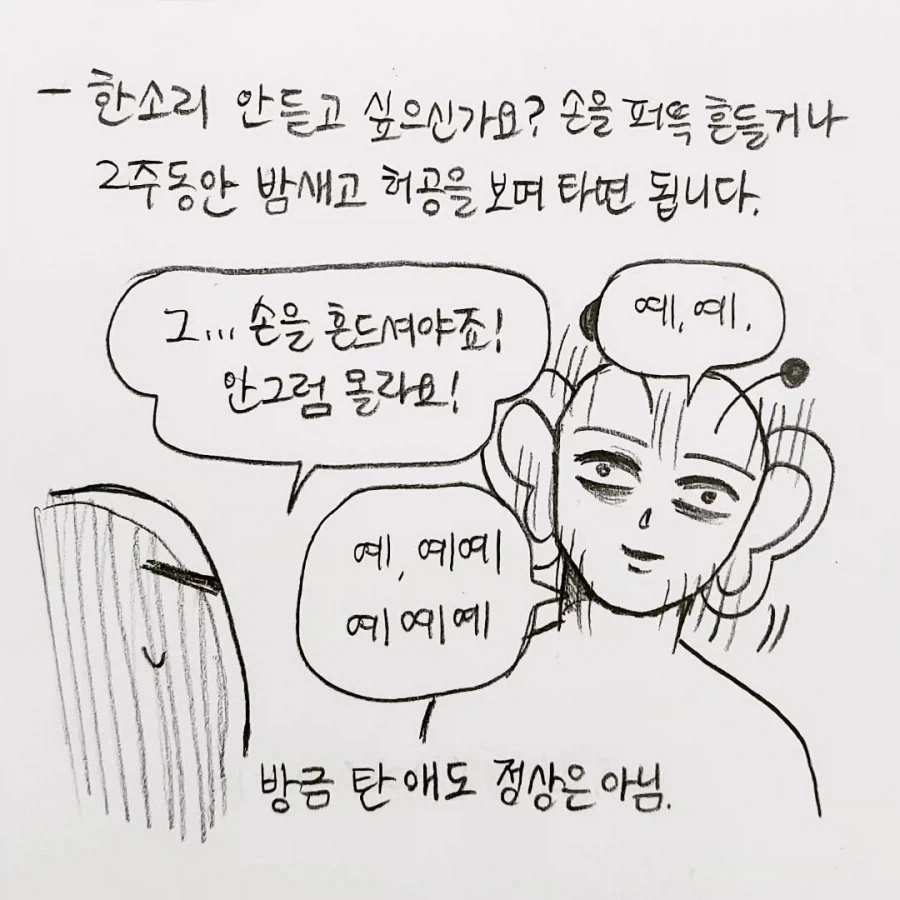 - 한소리 안듣고 싶으신가요? 손을 퍼뜩 흔들거나
2주동안 밤새고 허공을 보며 타면 됩니다.
그... 손을 흔드셔야죠!
안그럼 몰라요!
예, 예.
예, 예예
예예예
방금 탄 애도 정상은 아님.